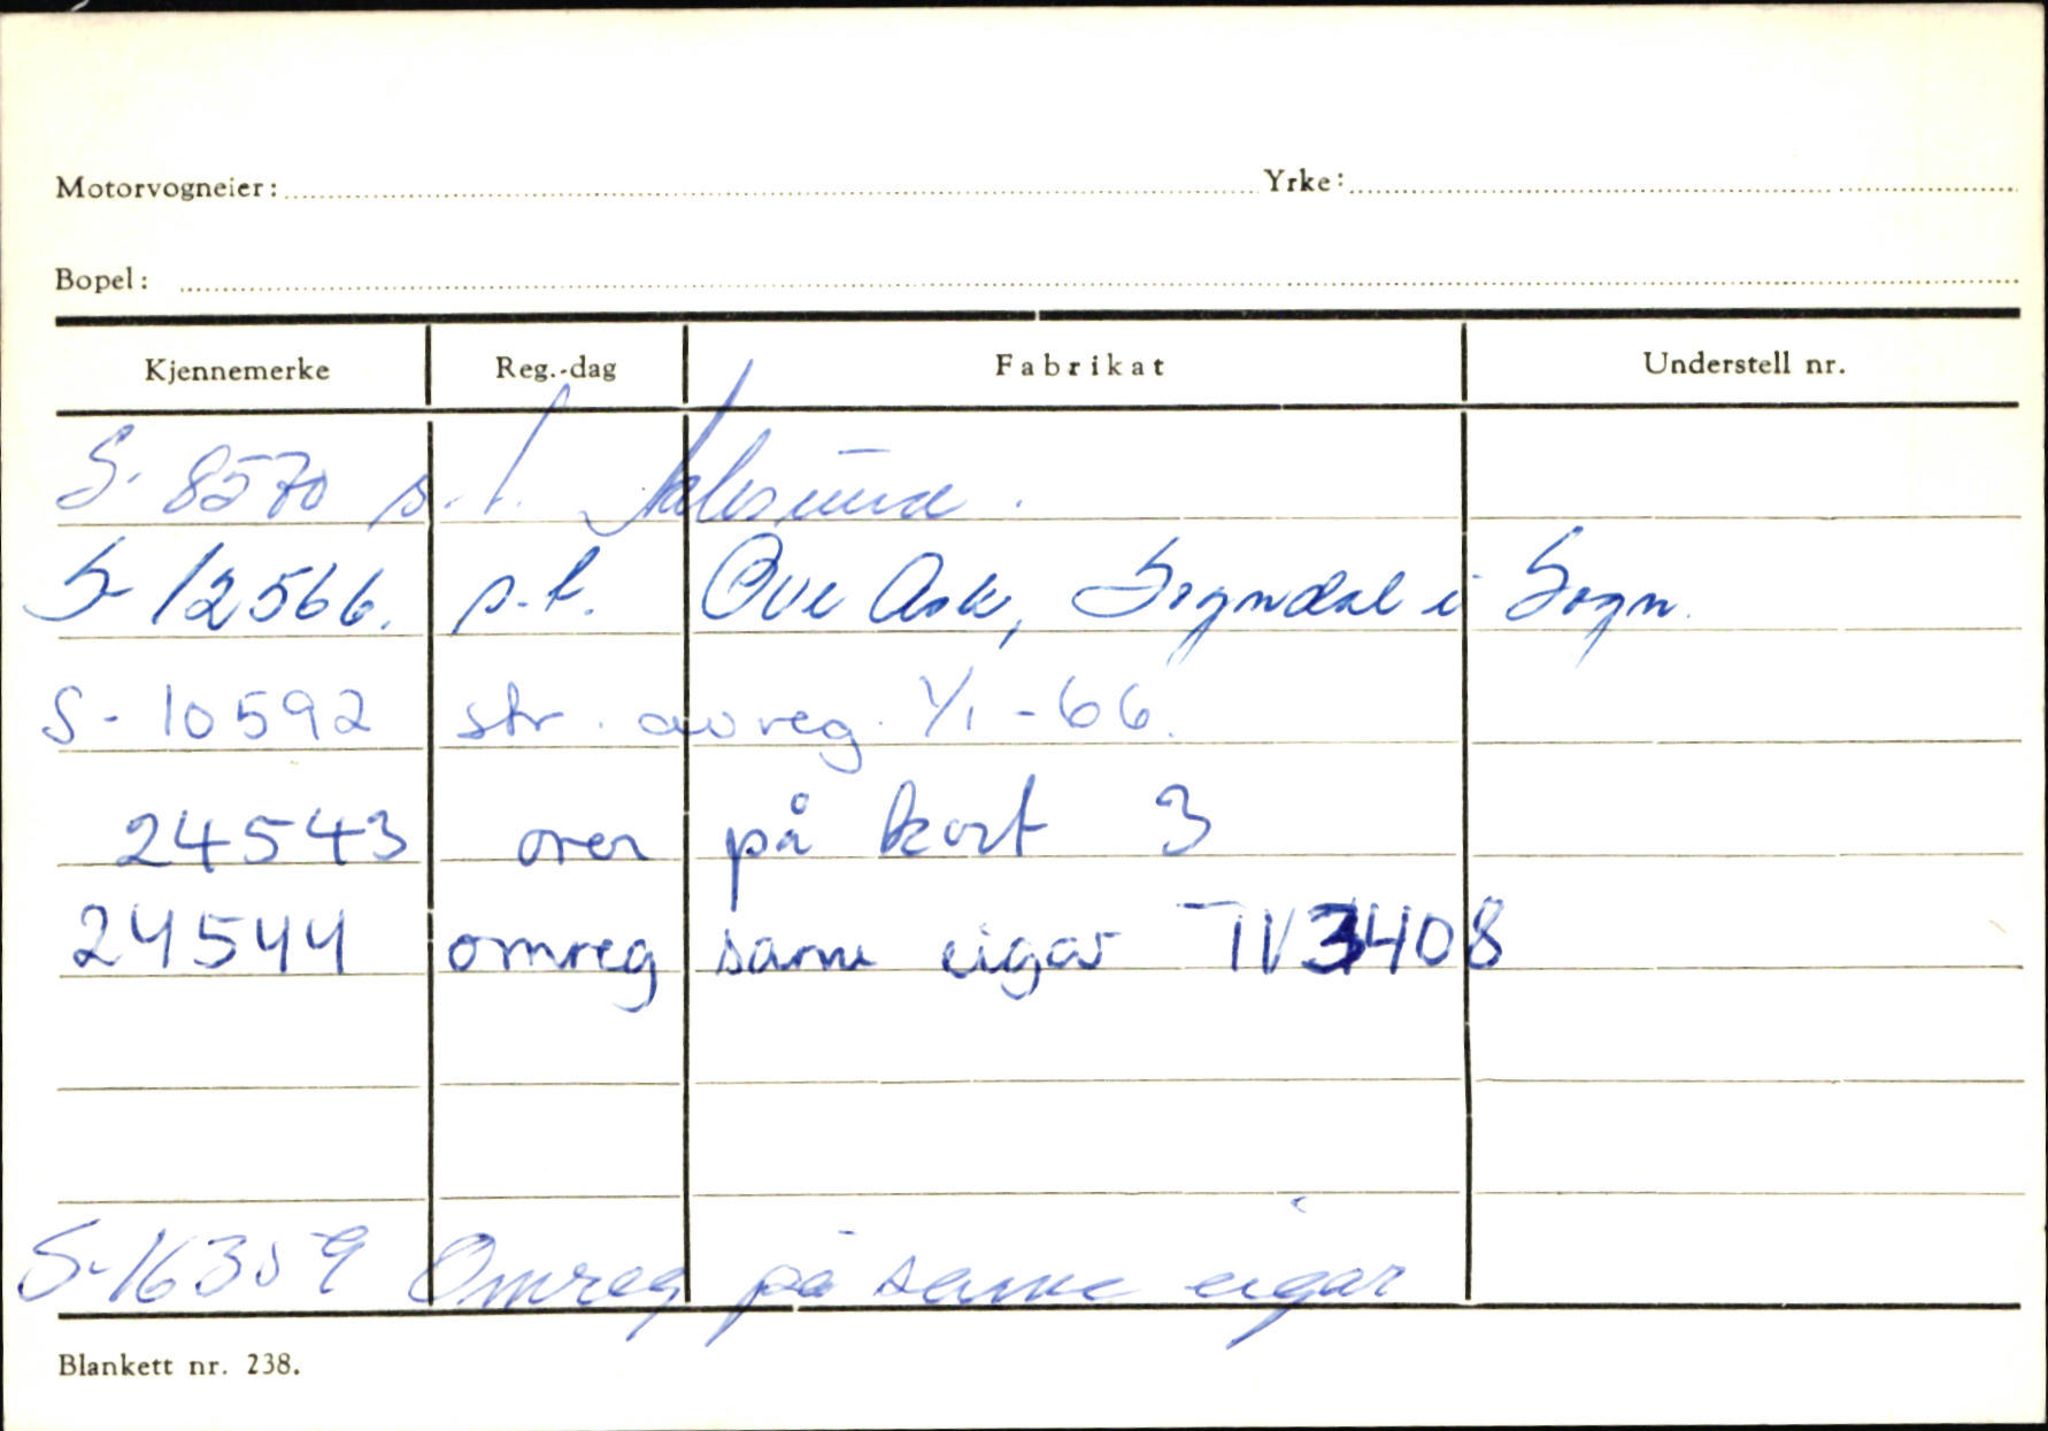 Motorvogneier:
Yrke:
Bopel:
Kjennemerke Reg.-dag Fabrikat Understell nr.
S- 8570 s.t. Aalesund.
S- 12566. s.t. Ove Ask, Sogndal i Sogn.
S- 10592 str. avreg. 1/1-66.
24543 over på kort 3
24544 omreg same eigar TV3408
S-16359 Omreg på same eigar
Blankett nr. 238.